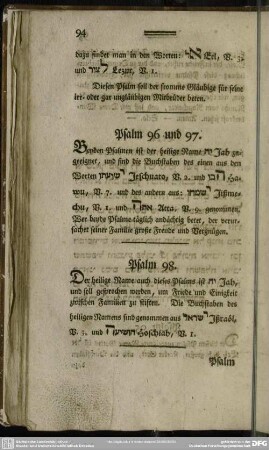 94
dazu findet man in den Worten: אל El, V. 3.
und לצור Lezur, V. 1.
Diesen Psalm soll der fromme Gläubige für seine
irr- oder gar ungläubigen Mitbrüder beten.
Psalm 96 und 97.
Beyden Psalmen ist der heilige Name יה Jah zu-
geeignet, und sind die Buchstaben des einen aus den
Worten ישועתו Jeschuato, V. 2. und הבו Ha-
wu, V. 7. und des andern aus: ישמחו Jißme-
chu, V. 1. und אתה Atta, V. 9. genommen.
Wer beyde Psalme täglich andächtig betet, der verur-
sachet seiner Familie große Freude und Vergnügen.
Psalm 98.
Der heilige Name auch dieses Psalms ist יה Jah,
und soll gesprochen werden, um Friede und Einigkeit
zwischen Familien zu stiften. Die Buchstaben des
heiligen Namens sind genommen aus ישראל Jißraöl,
V. 3. und הושיעה Hoschiah, V. 1.
Psalm
DFG